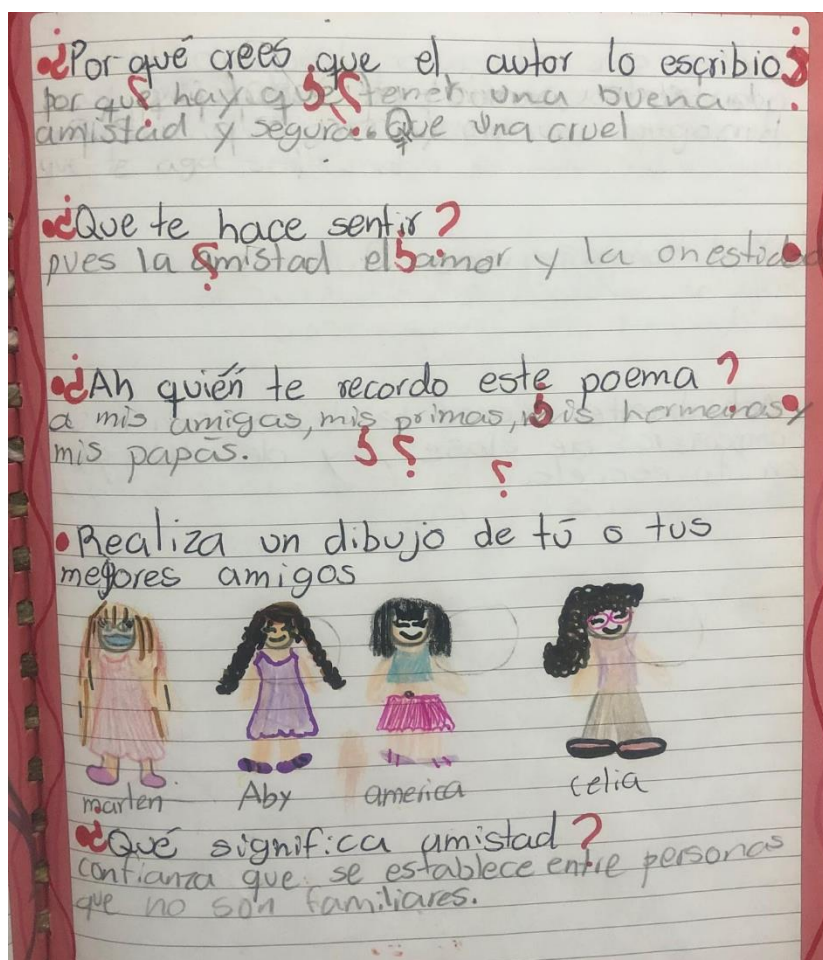 ¿Por qué crees que el autor lo escribio?
por que hay que tener una buena
amistad y segura. Que una cruel
¿Que te hace sentir?
pues la amistad el amor y la onestidad
¿Ah quién te recordo este poema?
a mis amigas, mis primas, mis hermanas y
mis papás.
• Realiza un dibujo de tú o tus
mejores amigos
marlen Aby america celia
¿Qué significa amistad?
confianza que se establece entre personas
que no son familiares.